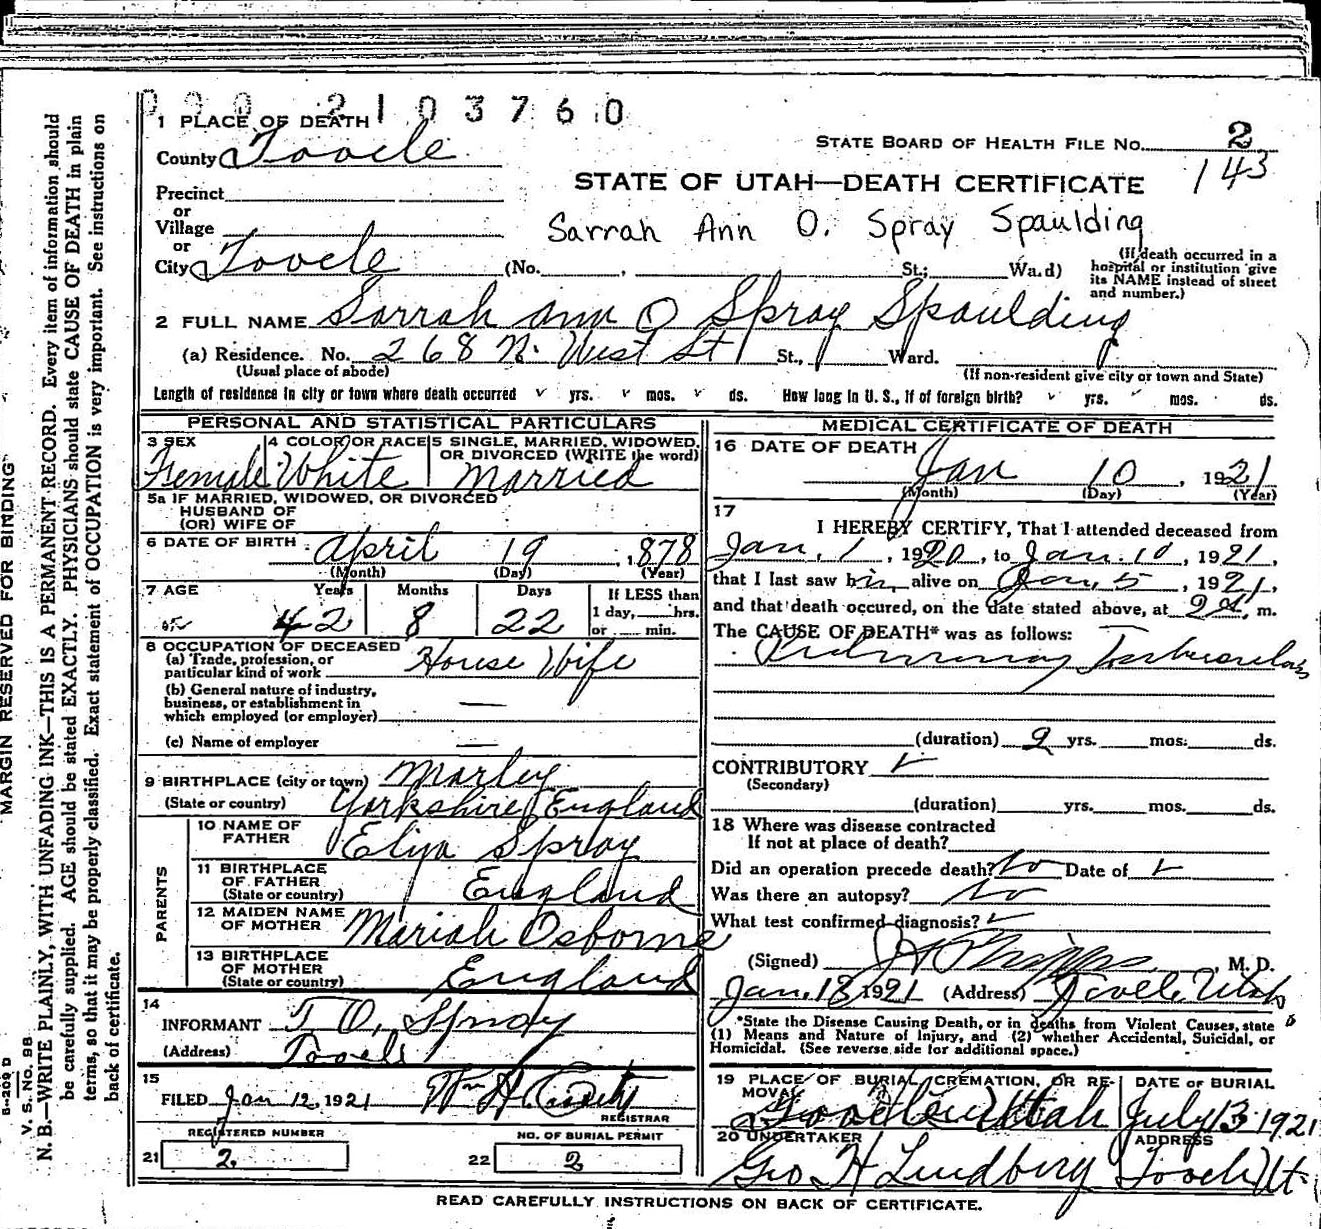 2103760
1 PLACE OF DEATH
County Tooele
STATE BOARD OF HEALTH FILE NO. 2
143
Precinct
or
Village
or
City Tooele (No. , St.; Wa.d)
STATE OF UTAH—DEATH CERTIFICATE
Sarrah Ann O. Spray Spaulding
(If death occurred in a
hospital or institution give
its NAME instead of street
and number.)
2 FULL NAME Sarrah Ann O Spray Spaulding
(a) Residence. No. 268 N. West St St., Ward.
(Usual place of abode)
(If non-resident give city or town and State)
Length of residence in city or town where death occurred yrs. mos. ds. How long in U. S., if of foreign birth? yrs. mos. ds.
PERSONAL AND STATISTICAL PARTICULARS
3 SEX
Female
4 COLOR OR RACE
White
5 SINGLE, MARRIED, WIDOWED,
OR DIVORCED (WRITE the word)
Married
5a IF MARRIED, WIDOWED, OR DIVORCED
HUSBAND OF
(OR) WIFE OF
6 DATE OF BIRTH April 19, 1878
(Month) (Day) (Year)
7 AGE
Years Months Days
42 8 22
If LESS than
1 day, hrs.
or min.
8 OCCUPATION OF DECEASED
(a) Trade, profession, or
particular kind of work House Wife
(b) General nature of industry,
business, or establishment in
which employed (or employer) —
(c) Name of employer —
9 BIRTHPLACE (city or town) Marley
(State or country) Yorkshire England
PARENTS
10 NAME OF
FATHER Eliza Spray
11 BIRTHPLACE
OF FATHER
(State or country) England
12 MAIDEN NAME
OF MOTHER Mariah Osborne
13 BIRTHPLACE
OF MOTHER
(State or country) England
14
INFORMANT T O, Spray
(Address) Tooele
15
FILED Jan 12, 1921 Wm H
REGISTRAR
REGISTERED NUMBER
21 2.
NO. OF BURIAL PERMIT
22 2
MEDICAL CERTIFICATE OF DEATH
16 DATE OF DEATH
Jan 10, 1921
(Month) (Day) (Year)
17
I HEREBY CERTIFY, That I attended deceased from
Jan. 1, 1920, to Jan. 10, 1921,
that I last saw him alive on Jan, 5, 1921,
and that death occured, on the date stated above, at m.
The CAUSE OF DEATH* was as follows:
Pulmonary Tuberculosis
(duration) 2 yrs. mos. ds.
CONTRIBUTORY
(Secondary)
(duration) yrs. mos. ds.
18 Where was disease contracted
If not at place of death?
Did an operation precede death? No Date of
Was there an autopsy? No
What test confirmed diagnosis?
(Signed) J H Phipps, M. D.
Jan. 18, 1921 (Address) Tooele, Utah
*State the Disease Causing Death, or in deaths from Violent Causes, state
(1) Means and Nature of Injury, and (2) whether Accidental, Suicidal, or
Homicidal. (See reverse side for additional space.)
19 PLACE OF BURIAL, CREMATION, OR RE-
MOVAL
Tooele Utah
DATE OF BURIAL
July 13 1921
20 UNDERTAKER
Geo H Lindberg
ADDRESS
Tooele Ut.
READ CAREFULLY INSTRUCTIONS ON BACK OF CERTIFICATE.
MARGIN RESERVED FOR BINDING
V. S. No. 98
N. B.—WRITE PLAINLY, WITH UNFADING INK—THIS IS A PERMANENT RECORD. Every item of information should
be carefully supplied. AGE should be stated EXACTLY. PHYSICIANS should state CAUSE OF DEATH in plain
terms, so that it may be properly classified. Exact statement of OCCUPATION is very important. See instructions on
back of certificate.